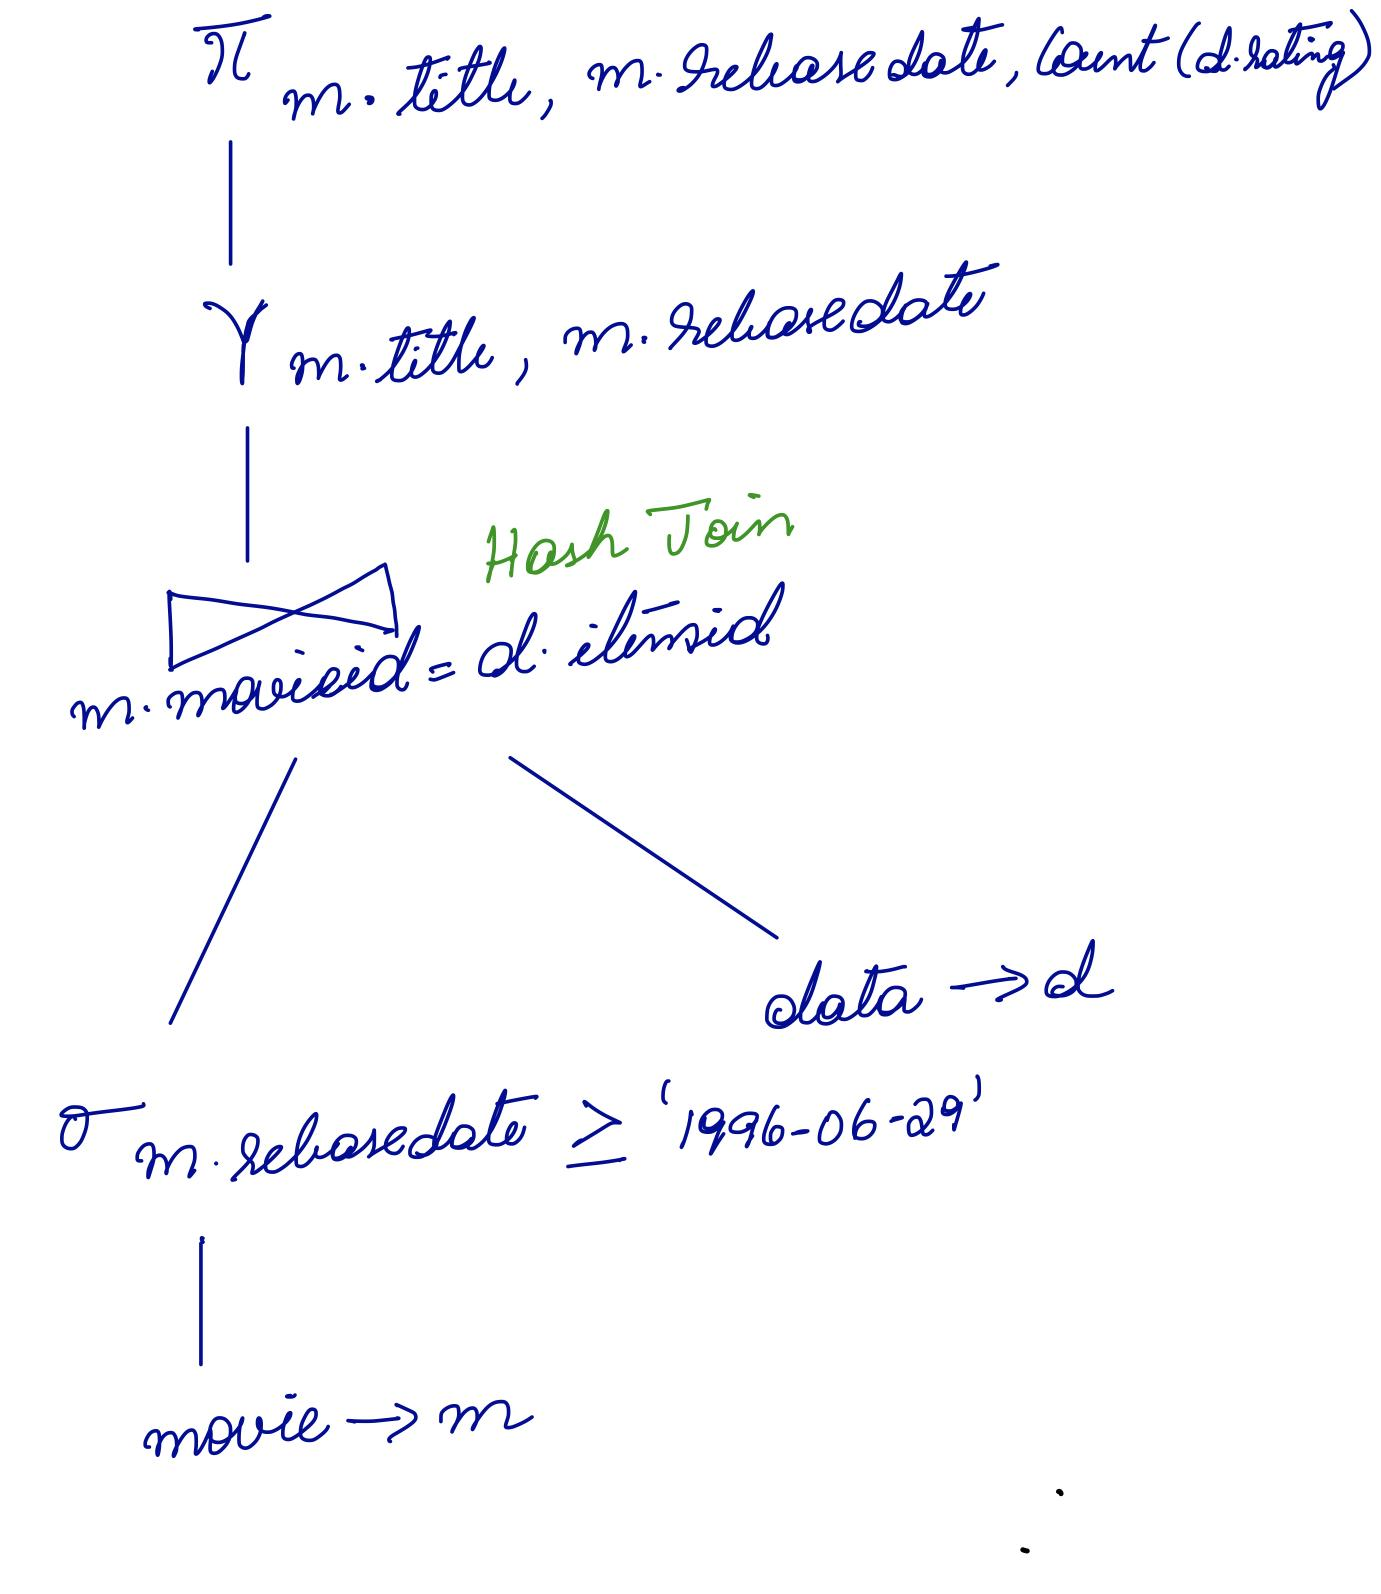 π m.title, m.releasedate, count(d.rating)
γ m.title, m.releasedate
Hash Join
⋈
m.movieid = d.itemid
data → d
σ m.releasedate ≥ '1996-06-29'
movie → m